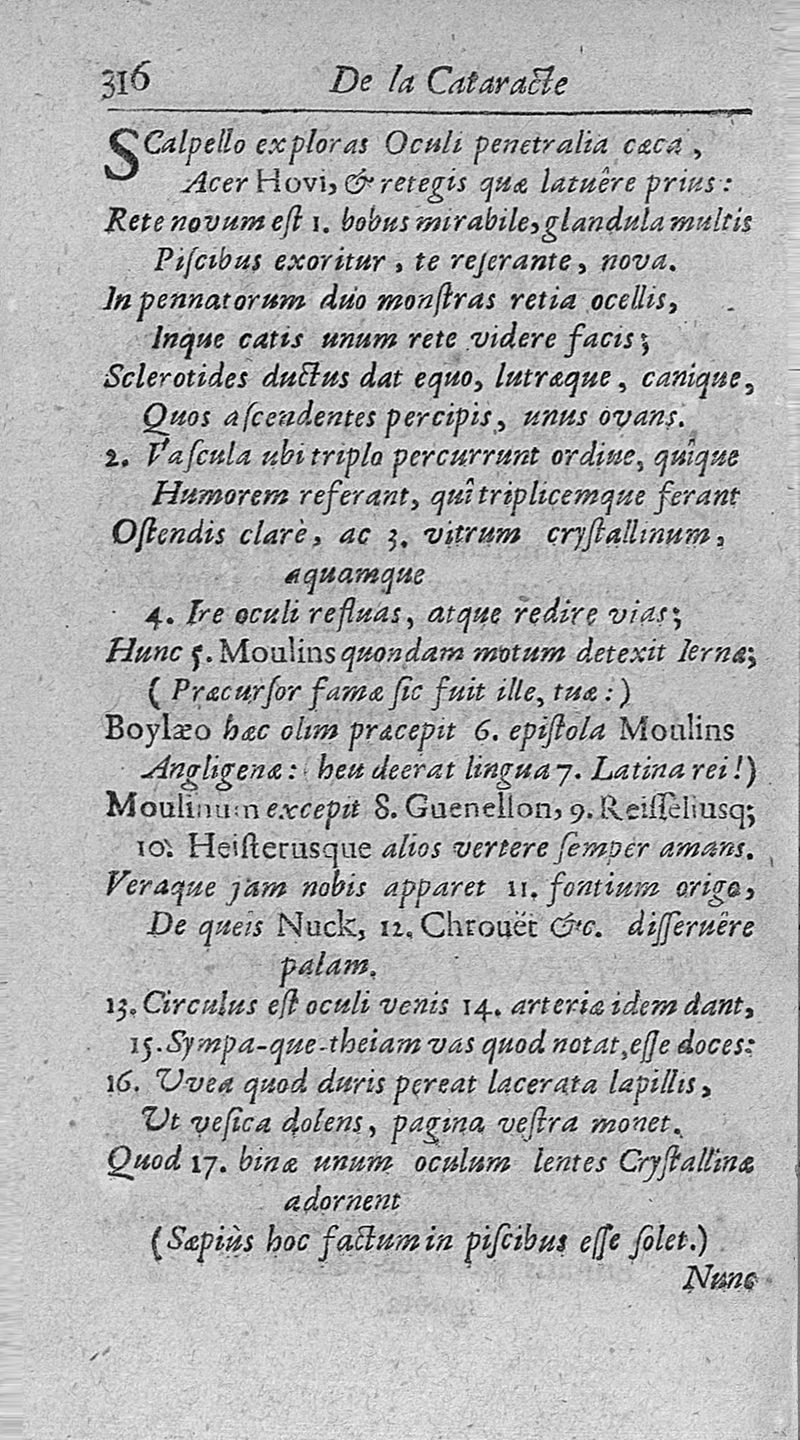 316 De la Cataracte
SCalpello exploras Oculi penetralia cæca,
Acer Hovi, & retegis quæ latuêre prius:
Rete novum eſt 1. bobus mirabile, glandula multis
Piſcibus exoritur, te reſerante, nova.
In pennatorum duo monſtras retia ocellis,
Inque catis unum rete videre facis;
Sclerotides ductus dat equo, lutræque, canique,
Quos aſcendentes percipis, unus ovans.
2. Vaſcula ubi triplo percurrunt ordine, quîque
Humorem referant, quî triplicemque ferant
Oſtendis clarè, ac 3. vitrum cryſtallinum,
aquamque
4. Ire oculi refluas, atque redire vias;
Hunc 5. Moulins quondam motum detexit Iernæ;
( Præcurſor famæ ſic fuit ille, tuæ:)
Boylæo hæc olim præcepit 6. epiſtola Moulins
Angligenæ: heu deerat lingua 7. Latina rei!)
Moulinum excepit 8. Guenellon, 9. Reiſſeliusq;
10. Heiſterusque alios vertere ſemper amans.
Veraque jam nobis apparet 11. fontium origo,
De queis Nuck, 12. Chrouët &c. diſſeruêre
palam.
13. Circulus eſt oculi venis 14. arteriæ idem dant,
15. Sympa-que-theiam vas quod notat, eſſe doces:
16. Uvea quod duris pereat lacerata lapillis,
Ut veſica dolens, pagina veſtra monet.
Quod 17. binæ unum oculum lentes Cryſtallinæ
adornent
(Sæpiùs hoc factum in piſcibus eſſe ſolet.)
Nunc